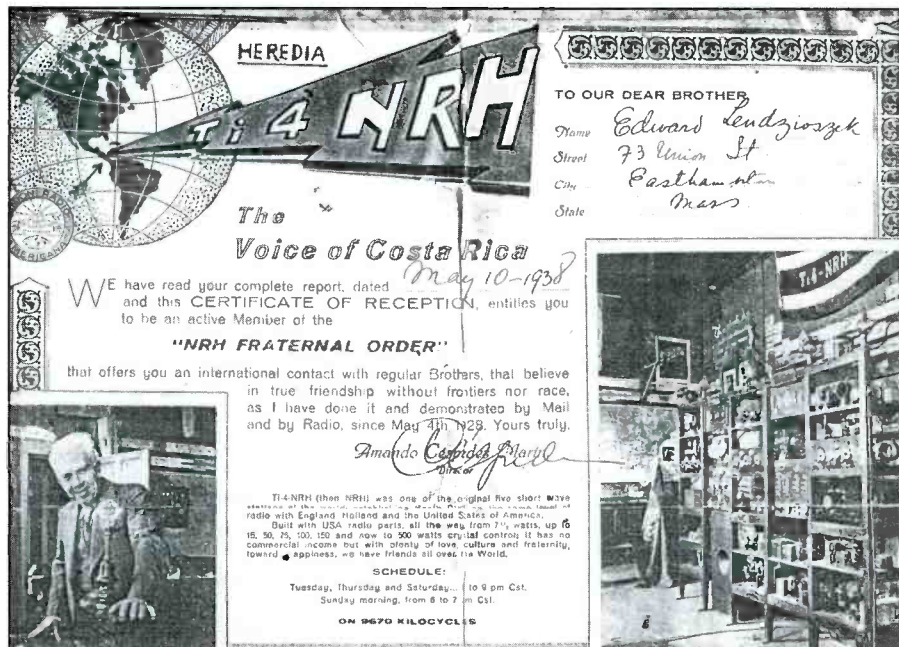 HEREDIA
Ti4 NRH
TO OUR DEAR BROTHER
Name Edward Lendzioszek
Street 73 Union St
City Easthampton
State Mass
The
Voice of Costa Rica
WE have read your complete report, dated May 10-1938
and this CERTIFICATE OF RECEPTION, entitles you
to be an active Member of the
"NRH FRATERNAL ORDER"
that offers you an international contact with regular Brothers, that believe
in true friendship without frontiers nor race,
as I have done it and demonstrated by Mail
and by Radio, since May 4th 1928. Yours truly,
Amando Céspedes Marín
Director
Ti-4-NRH (then NRH) was one of the original five short wave
radio with England Holland and the United States of America.
Built with USA radio parts, all the way from 7½ watts, up to
15, 50, 75, 100, 150 and now to 500 watts crystal control; it has no
commercial income but with plenty of love, culture and fraternity,
toward happiness, we have friends all over the World.
SCHEDULE:
Tuesday, Thursday and Saturday... to 9 pm Cst.
Sunday morning, from 6 to 7 Cst.
ON 9670 KILOCYCLES
Ti-4-NRH